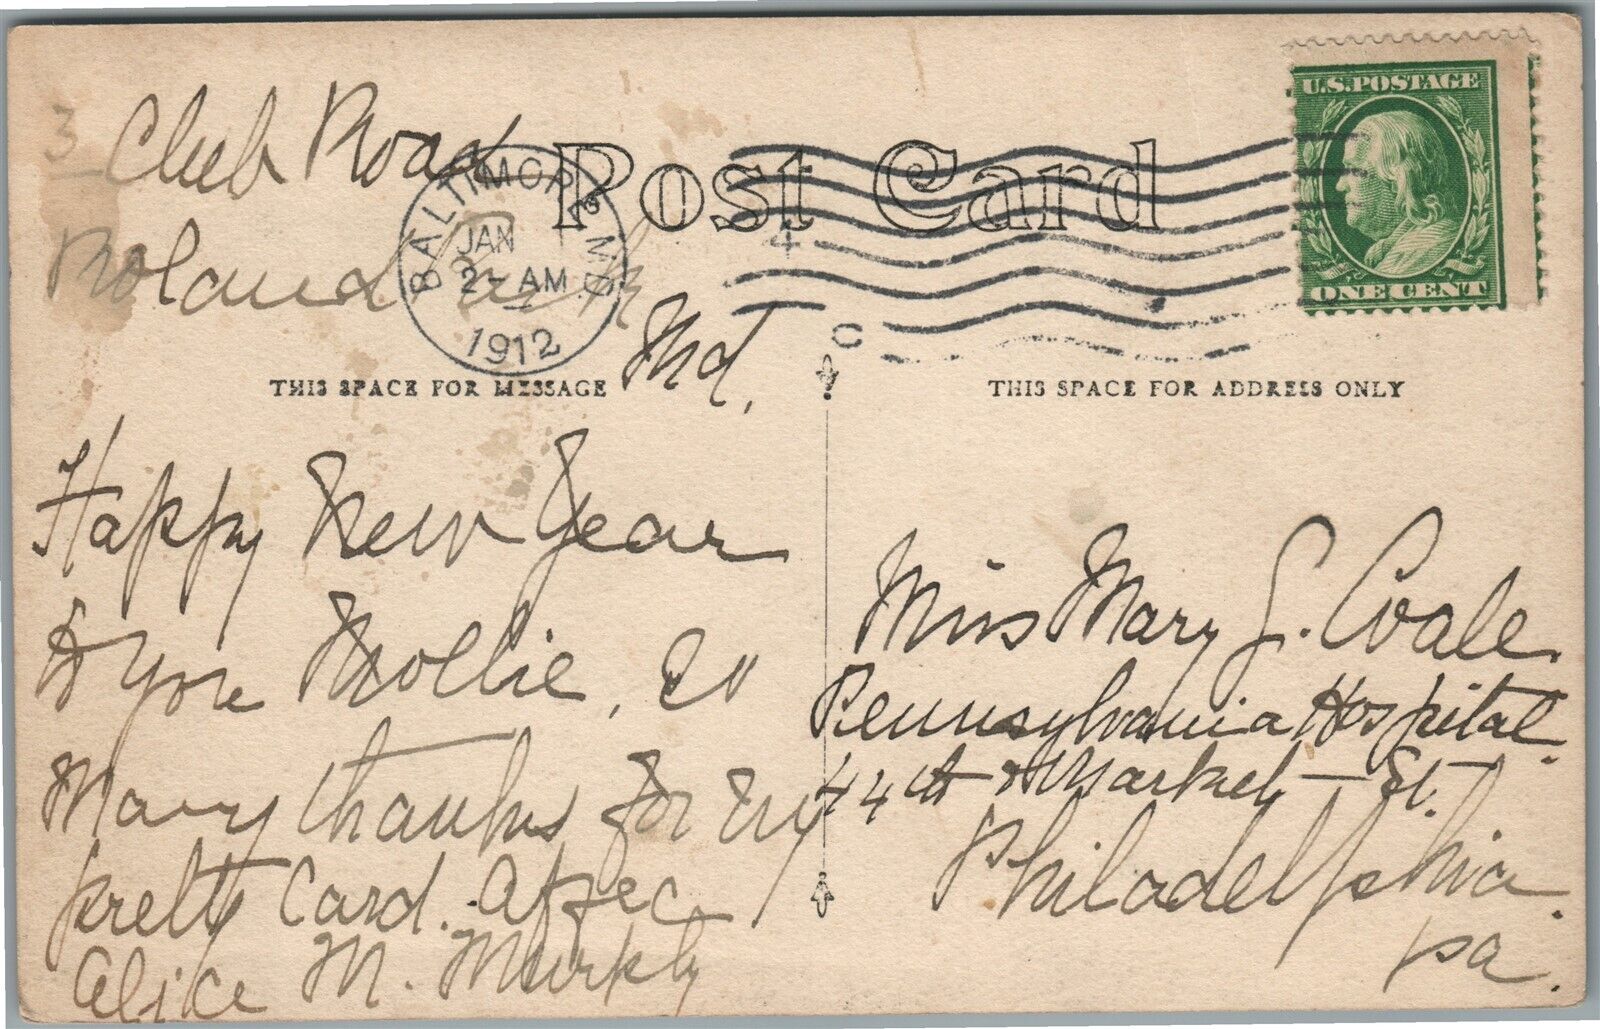 3 Club Road
Roland Park
Md.
Post Card
U.S. POSTAGE
ONE CENT
BALTIMORE, MD.
JAN
2- AM
1912
4
C
THIS SPACE FOR MESSAGE
THIS SPACE FOR ADDRESS ONLY
Happy New Year
to you Mollie,
Many thanks for my
pretty Card. Affec
Alice M. Murphy
Miss Mary G. Coale
Pennsylvania Hospital.
44th & Market St.
Philadelphia.
Pa.